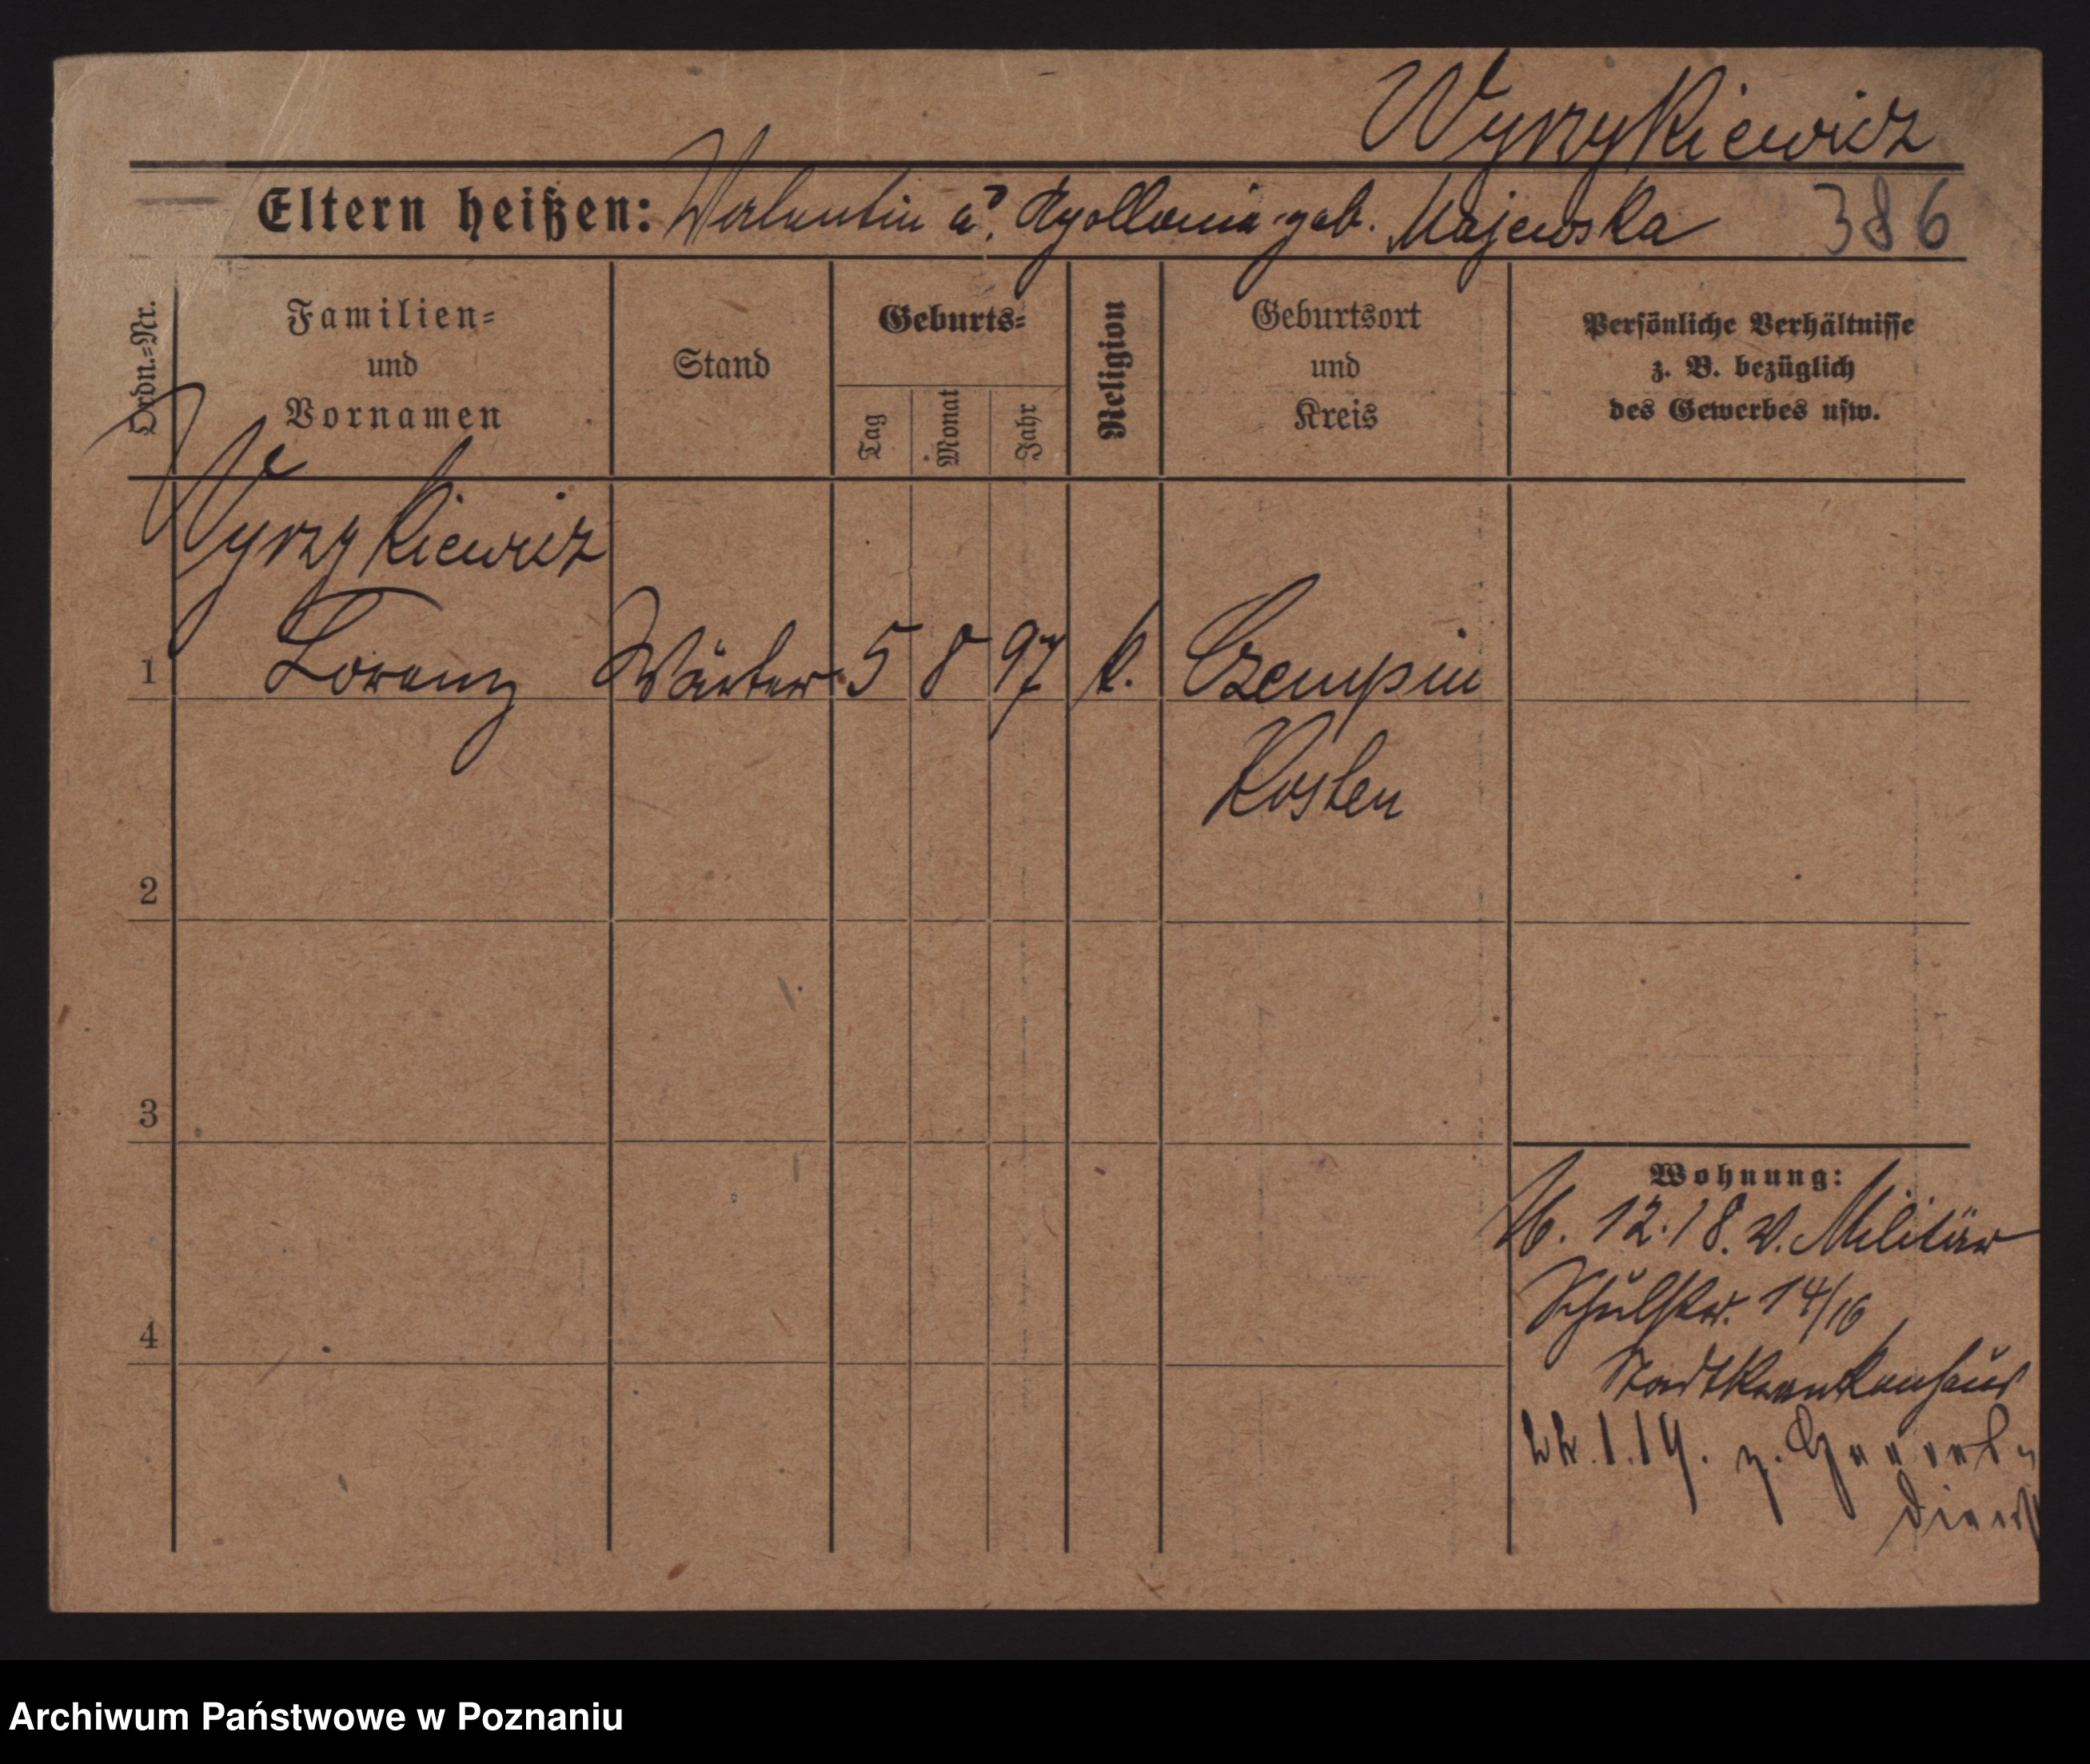 Wyrzykiewicz
Eltern heißen: Valentin u. Apollonia geb. Majewska 386
Ordn.=Nr.
Familien=
und
Vornamen
Stand
Geburts=
Tag
Monat
Jahr
Religion
Geburtsort
und
Kreis
Persönliche Verhältnisse
z. B. bezüglich
des Gewerbes usw.
Wyrzykiewicz
1 Lorenz Wärter 5 8 97 k. Czempin
Kosten
2
3
4
Wohnung:
16. 12. 18. v. Militär
Schulstr. 14/16
Stadtkrankenhaus
1. 19. z.
Archiwum Państwowe w Poznaniu